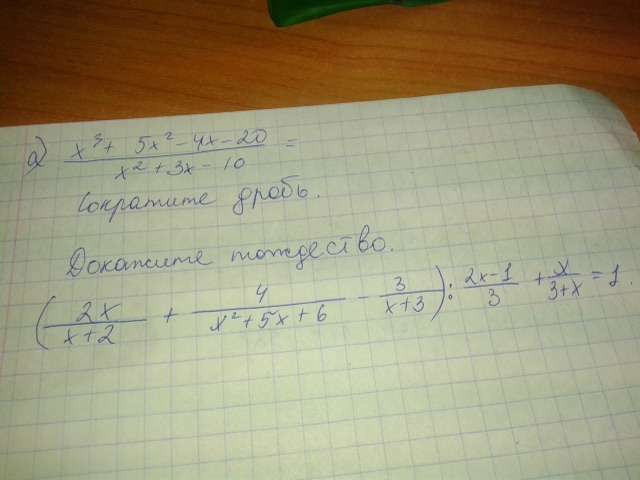 а) (x³ + 5x² - 4x - 20)/(x² + 3x - 10) =
Сократите дробь.
Докажите тождество.
(2x/(x+2) + 4/(x² + 5x + 6) - 3/(x+3)) : (2x-1)/3 + x/(3+x) = 1.